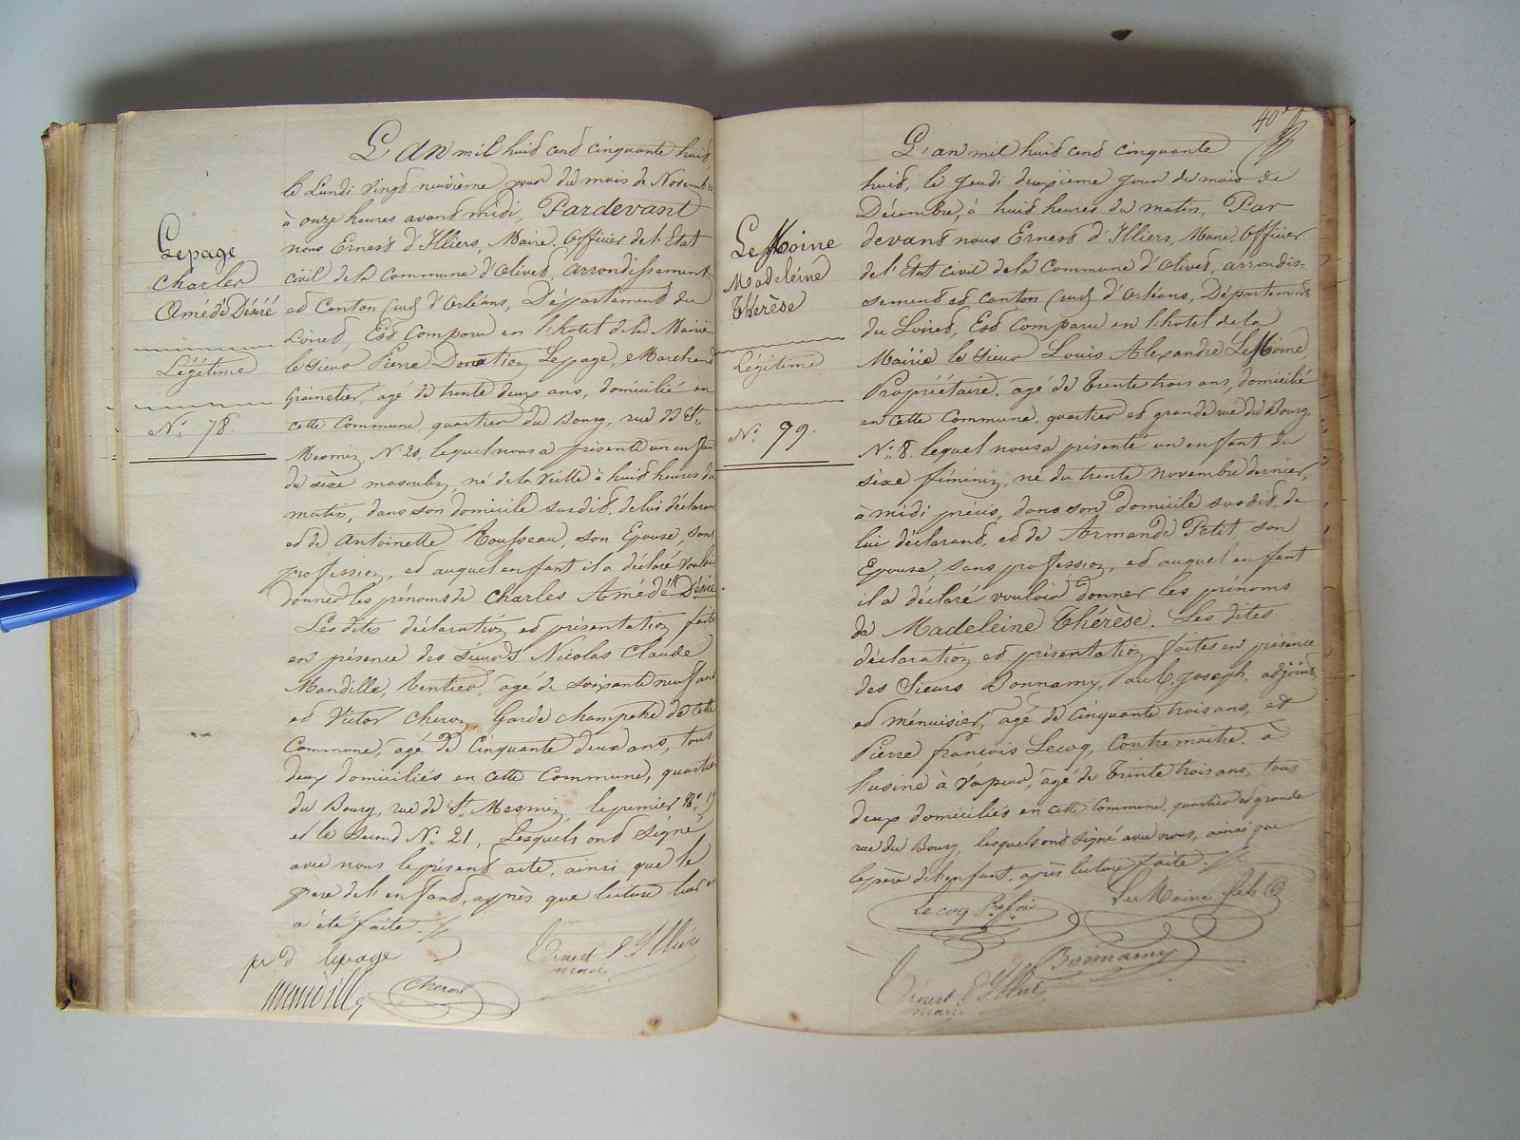 Lepage
Charles
Amédé Désiré
Légitime
N.º 78.
L'an mil huit cent cinquante huit
le Lundi vingt neuvième jour du mois de Novembre
à onze heures avant midi, Pardevant
nous Ernest d'Illiers, Maire. Officier de l'Etat
civil de la Commune d'Olivet, arrondissement
et Canton Sud d'Orléans, Département du
Loiret, Est comparu en l'hotel de la Mairie
le sieur Pierre Donatien Lepage, Marchand
Grainetier, agé de trente deux ans, domicilié en
cette Commune, quartier du Bourg, rue de St.
Mesmin, N.º 20, lequel nous a présenté un enfant
du sexe masculin, né de la veille à huit heures du
matin, dans son domicile susdit. de lui déclarant
et de Antoinette Rousseau, son Epouse, sans
profession, et auquel enfant il a déclaré vouloir
donner les prénoms de Charles Amédé Désiré
Les dites déclaration et présentation faites
en présence des sieurs Nicolas Claude
Mandille, rentier, agé de soixante neuf ans
et Victor Cheron Garde champetre de cette
Commune, agé de Cinquante deux ans, tous
deux domiciliés en cette Commune, quartier
du Bourg, rue de St. Mesmin, le premier Nº
et le second Nº 21, Lesquels ont signé
avec nous le présent acte, ainsi que le
pere de l'enfant, après que lecture leur en
a été faite.
pr d lepage
Ernest d'Illiers
maire
mandille
Cheron
40e
Le Moine
Madeleine
Thérèse
Légitime
N.º 79.
L'an mil huit cent cinquante
huit, le Jeudi deuxieme jour du mois de
Décembre, à huit heures du matin, Par
devant nous Ernest d'Illiers, Maire. Officier
de l'Etat civil de la Commune d'Olivet, arrondis-
sement et canton Sud d'Orléans, Département
du Loiret, Est comparu en l'hotel de la
Mairie le sieur Louis Alexandre Le Moine,
Propriétaire. agé de Trente trois ans, domicilié
en cette Commune, quartier et grande rue du Bourg.
N.º 8. lequel nous a présenté un enfant du
sexe féminin, né du trente novembre dernier,
à midi précis, dans son domicile susdit. de
lui déclarant, et de Armande Petit, son
Epouse, sans profession, et auquel enfant
il a déclaré vouloir donner les prénoms
de Madeleine Thérèse. Les dites
déclaration et présentation faites en présence
des Sieurs Bonnamy, Joseph, adjoint
et ménuisier, agé de Cinquante trois ans, et
Pierre François Lecoq, Contremaitre. à
l'usine à vapeur, agé de Trente trois ans, tous
deux domiciliés en cette Commune, quartier et grande
rue du Bourg, lesquels ont signé avec nous, ainsi que
le père de l'enfant. après lecture faite.
Lecoq Pre foi
Le Moine
Bonnamy
Ernest d'Illiers
maire